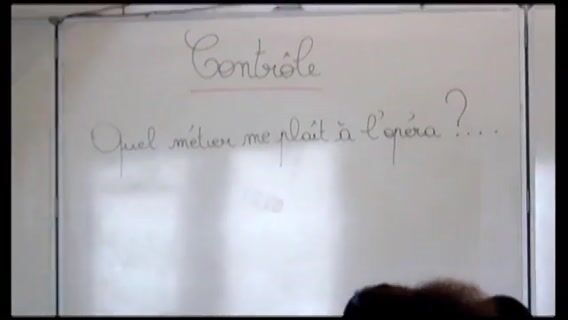 Contrôle
Quel métier me plaît à l'opéra ?...